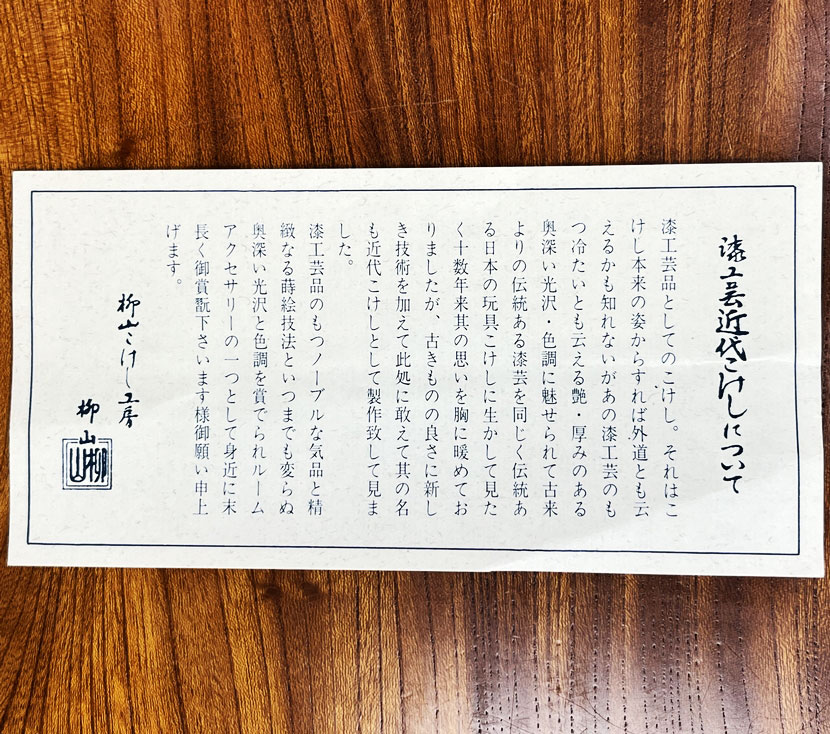 漆工芸近代こけしについて
漆工芸品としてのこけし。それはこ
けし本来の姿からすれば外道とも云
えるかも知れないがあの漆工芸のも
つ冷たいとも云える艶・厚みのある
奥深い光沢・色調に魅せられて古来
よりの伝統ある漆芸を同じく伝統あ
る日本の玩具こけしに生かして見た
く十数年来其の思いを胸に暖めてお
りましたが、古きものの良さに新し
き技術を加えて此処に敢えて其の名
も近代こけしとして製作致して見ま
した。
漆工芸品のもつノーブルな気品と精
緻なる蒔絵技法といつまでも変らぬ
奥深い光沢と色調を賞でられルーム
アクセサリーの一つとして身近に末
長く御賞翫下さいます様御願い申上
げます。
柳山こけし工房
柳山
柳山